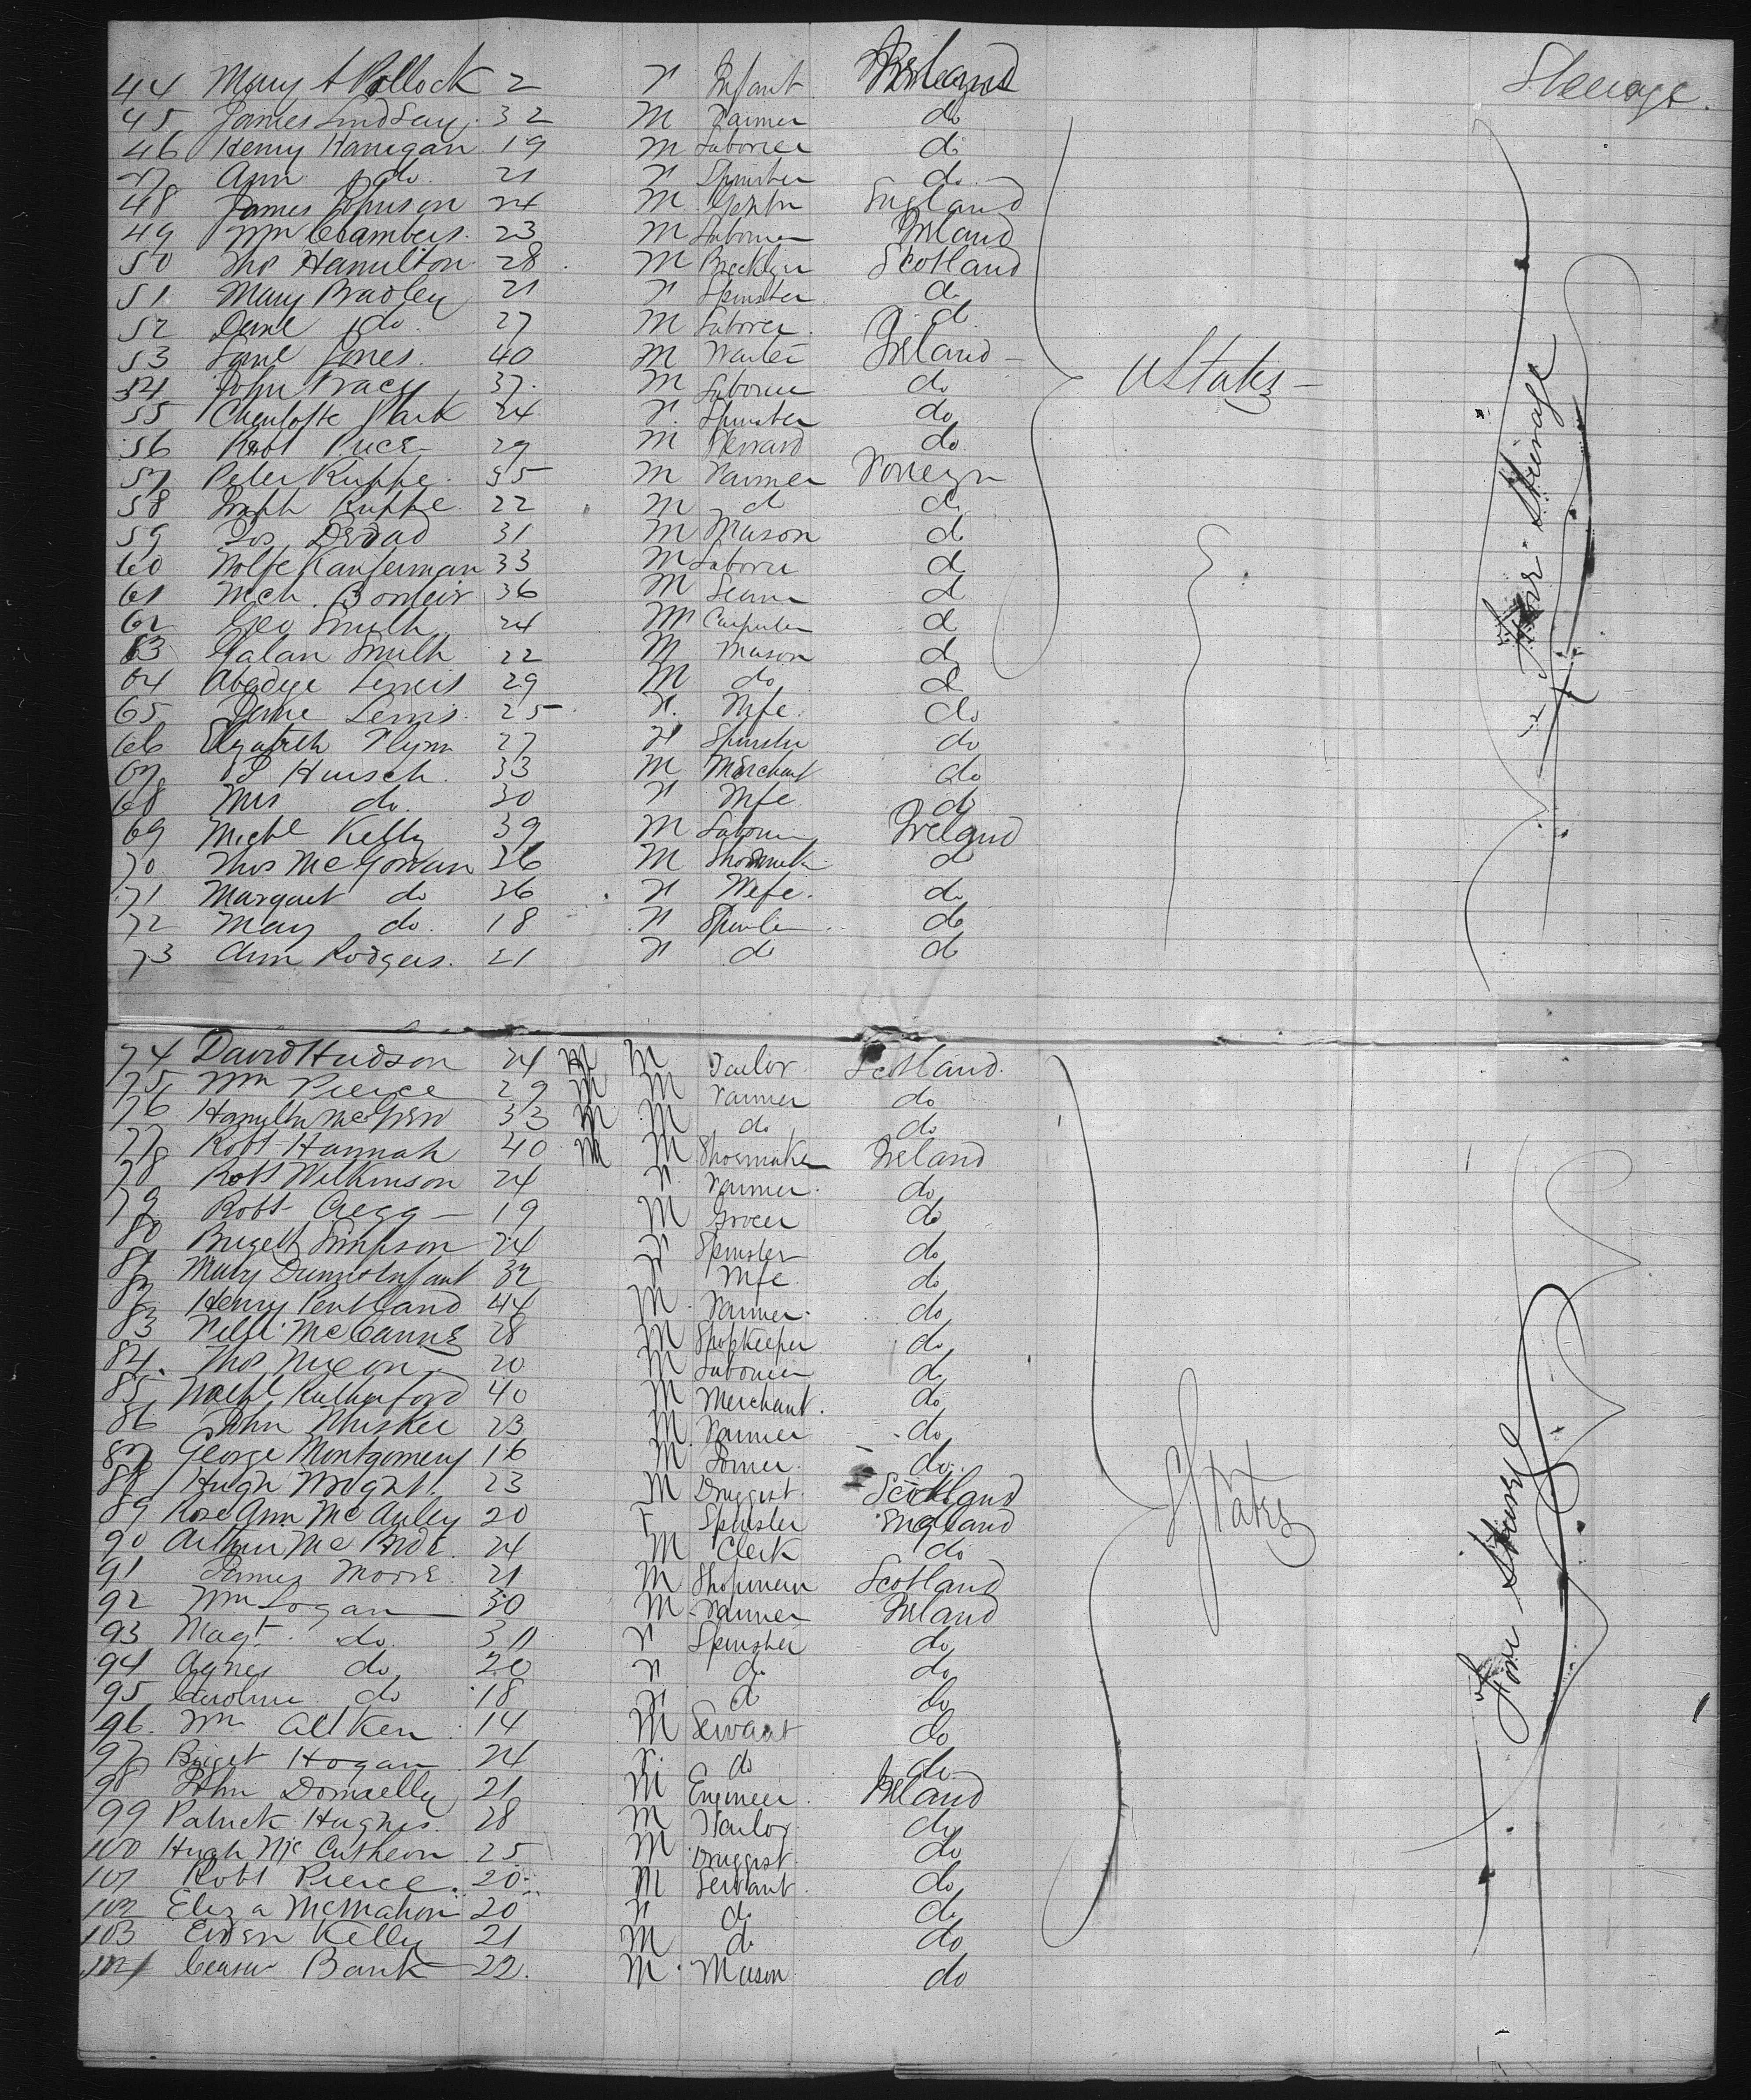 44 Mary A Pollock 2 F Infant Ireland Steerage.
45 James Lindsay 32 M Farmer do
46 Henry Hanigan 19 M Laborer do
47 Ann do 21 F Spinster do
48 James Johnson 24 M England
49 Wm Chambers 23 M Laborer Ireland
50 Thos Hamilton 28 M Scotland
51 Mary Bradley 21 F Spinster do
52 do 27 M Laborer do
53 Jones 40 M Ireland
54 John Tracy 37 M Laborer do
55 Charlotte 24 F Spinster do
56 Robt Price 29 M Steward do
57 Peter Kuppe 35 M Farmer Foreign
58 Kuppe 22 M do do
59 Jos 31 M Mason do
60 Wolfe Kauferman 33 M Laborer do
61 36 M do
62 Geo Smith 24 M Carpenter do
63 Galan Smith 22 M Mason do
64 Lewis 29 M do do
65 Jane Lewis 25 F Wife do
66 Elizabeth Flynn 27 F Spinster do
67 Hirsch 33 M Merchant do
68 Mrs do 30 F Wife do
69 Michl Kelly 39 M Laborer Ireland
70 Thos McGowan 36 M do
71 Margaret do 36 F Wife do
72 Mary do 18 F Spinster do
73 Ann Rodgers 21 F do do
U States
Fore Steerage
74 David Hudson 24 M M Tailor Scotland
75 Wm Pierce 29 M M Farmer do
76 Hamilton McGrew 33 M M do do
77 Robt Hannah 40 M M Shoemaker Ireland
78 Robt Wilkinson 24 F Farmer do
79 Robt Gregg 19 M Grocer do
80 Briget Simpson 24 F Spinster do
81 Mary Infant 32 F Wife do
82 Henry Pentland 44 M Farmer do
83 McCanne 28 M Shopkeeper do
84 Thos Nixon 20 M Laborer do
85 Rutherford 40 M Merchant do
86 John 23 M Farmer do
87 George Montgomery 16 M do
88 Hugh Wright 23 M Druggist Scotland
89 Rose Ann McAuley 20 F Spinster England
90 Arthur McBride 24 M Clerk do
91 James Moore 21 M Shopman Scotland
92 Wm Logan 30 M Farmer Ireland
93 Magt do 30 F Spinster do
94 Agnes do 20 F do do
95 Caroline do 18 F do do
96 Wm Aitken 14 M Servant do
97 Briget Hogan 24 F do do
98 John Donnelly 21 M Engineer Ireland
99 Patrick Hughes 28 M Tailor do
100 Hugh McCutheon 25 M Druggist do
101 Robt Pierce 20 M Servant do
102 Eliza McMahon 20 F do do
103 Kelly 21 M do do
104 Bank 22 M Mason do
U States
Fore Steerage